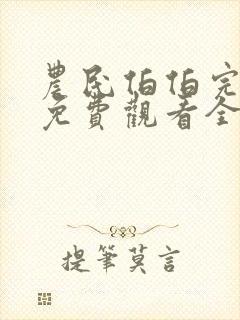 農民伯伯完
免費觀看全
提筆莫言